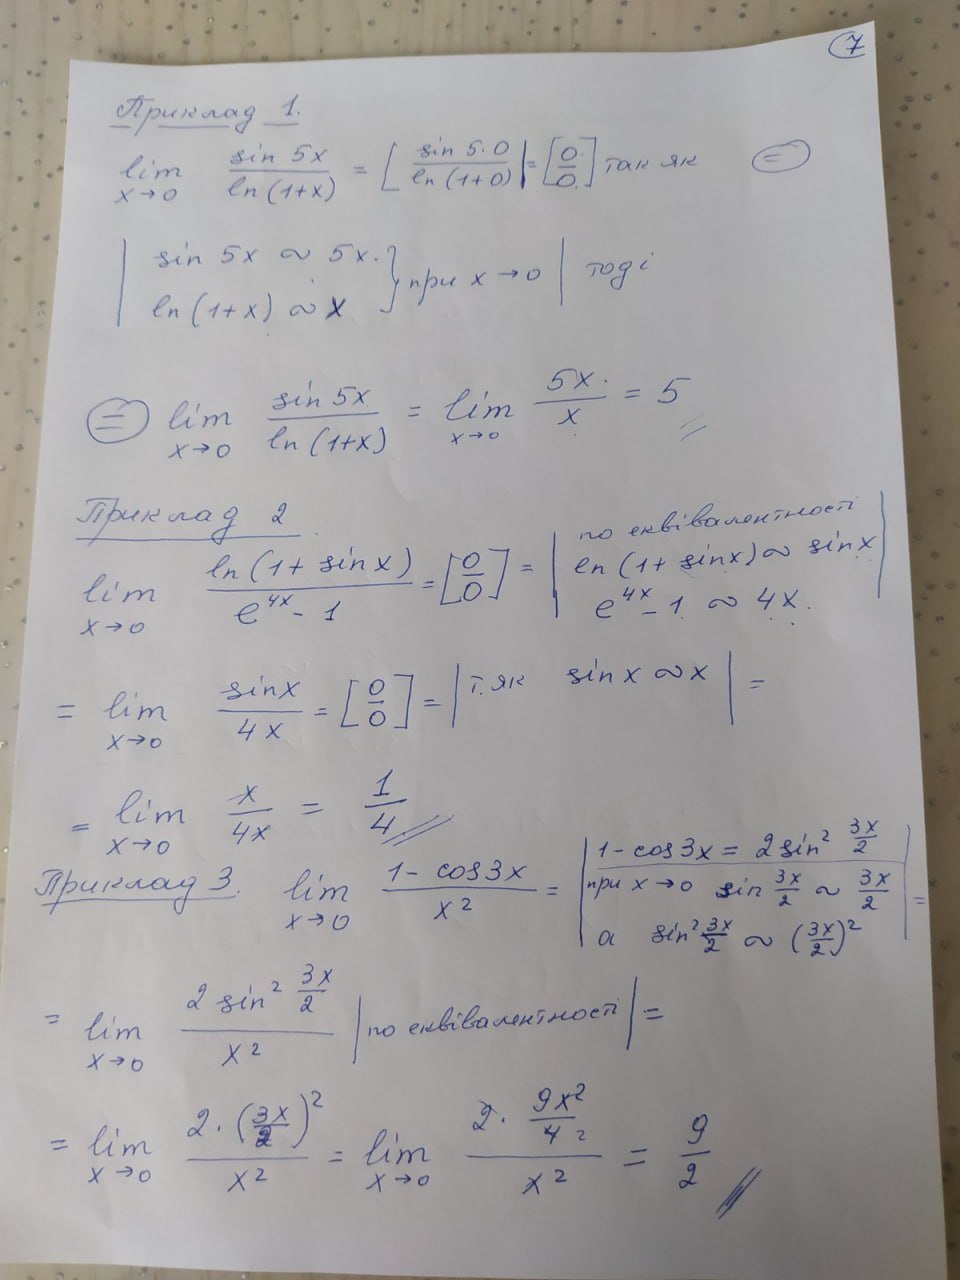 7
Приклад 1.
lim x→0 sin 5x / ln(1+x) = [ sin 5·0 / ln(1+0) ] = [ 0/0 ] так як =
| sin 5x ~ 5x.
ln(1+x) ~ x } при x→0 | тоді
= lim x→0 sin 5x / ln(1+x) = lim x→0 5x / x = 5
Приклад 2
lim x→0 ln(1+sinx) / e^4x - 1 = [ 0/0 ] = | по еквівалентності
ln(1+sinx) ~ sinx
e^4x - 1 ~ 4x. |
= lim x→0 sinx / 4x = [ 0/0 ] = | т.як sinx ~ x | =
= lim x→0 x / 4x = 1/4
Приклад 3. lim x→0 1 - cos3x / x² = | 1 - cos3x = 2sin² 3x/2
при x→0 sin 3x/2 ~ 3x/2
а sin² 3x/2 ~ (3x/2)² | =
= lim x→0 2 sin² 3x/2 / x² | по еквівалентності | =
= lim x→0 2·(3x/2)² / x² = lim x→0 2· 9x²/4 2 / x² = 9/2